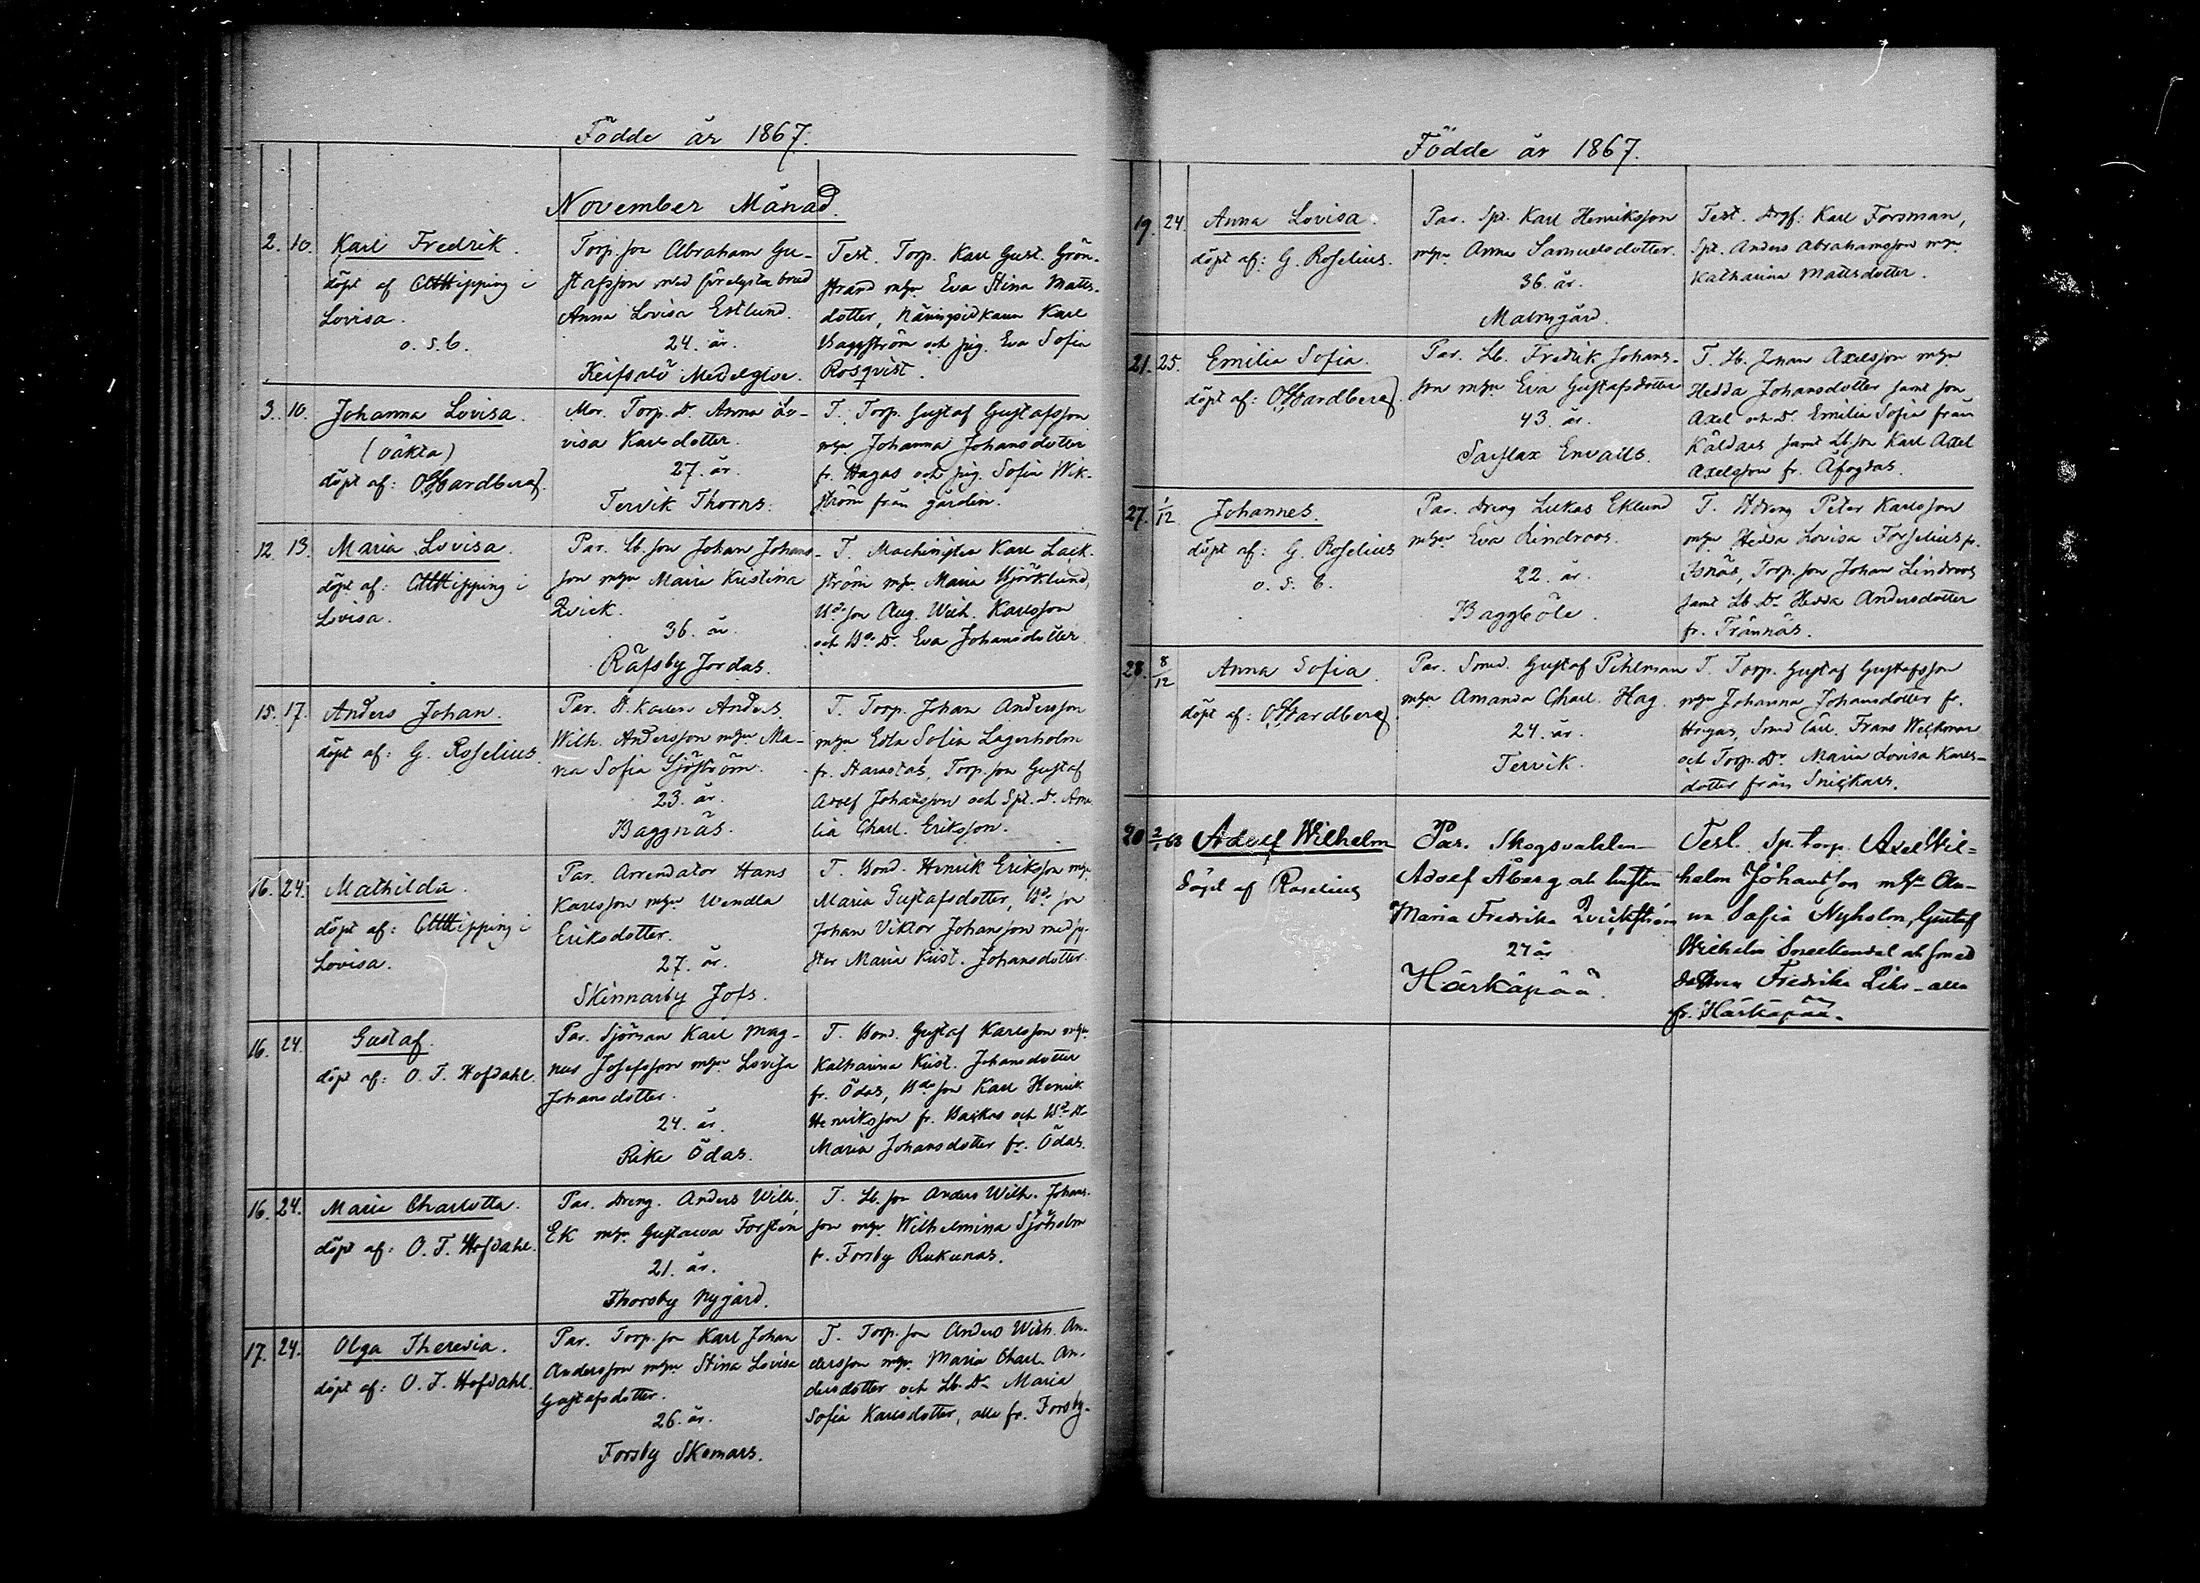 Födde år 1867.
November Månad.
2. 10. Karl Fredrik.
döpt af Kipping i
Lovisa.
o. s. b.
Torp. son Abraham Gu-
stafsson med förelysta brud
Anna Lovisa Estlund.
24. år.
Keifsalö Medelgloe.
Test. Torp. Karl Gust. Grön-
strand mhu Eva Stina Matts-
dotter, Näringsidkaren Karl
Baggström och pig. Eva Sofia
Rosqvist.
3. 10. Johanna Lovisa.
(oäkta)
döpt af: O. Hardberg.
Mor. Torp. D. Anna Lo-
visa Karlsdotter.
27. år.
Tervik Thorns.
T. Torp. Gustaf Gustafsson
mhu Johanna Johansdotter
fr. Hagas och pig. Sofia Wik-
ström från gården.
12 13. Maria Lovisa.
döpt af: Kipping i
Lovisa.
Par. Lb. son Johan Johans-
son mhu Maria Kristina
Qvick.
36. år.
Räfsby Jordas.
T. Machinista Karl Lack-
ström mhu Maria Björklund,
Bd. son Aug. Wilh. Karlsson
och Bd. D. Eva Johansdotter
15. 17. Anders Johan.
döpt af: G. Roselius.
Par. Anders
Wilh. Andersson mhu Ma-
ria Sofia Sjöström.
23. år.
Baggnäs.
T. Torp. Johan Andersson
mhu Edla Sofia Lagerholm
fr. Torp. son Gustaf
Adolf Johansson och Spt. D. Ama-
lia Charl. Eriksson.
16. 24. Mathilda.
döpt af: Kipping i
Lovisa.
Par. Arrendator Hans
Karlsson mhu Wendla
Eriksdotter.
27. år.
Skinnarby Jofs.
T. Bond. Henrik Eriksson mhu
Maria Gustafsdotter, Bd. son
Johan Viktor Johansson med sy-
ster Maria Krist. Johansdotter
16. 24. Gustaf.
döpt af: O. T. Hofdahl.
Par. Sjöman Karl Mag-
nus Josefsson mhu Lovisa
Johansdotter.
24. år.
Rike Ödas.
T. Bond. Gustaf Karlsson mhu
Katharina Krist. Johansdotter
fr. Ödas, Bde son Karl Henrik
Henriksson fr. Backas och Bd. D.
Maria Johansdotter fr. Ödas.
16. 24. Maria Charlotta.
döpt af: O. T. Hofdahl.
Par. Dreng. Anders Wilh.
Ek mhu Gustava Forstén
21. år.
Thorsby Nygård.
T. Lb. son Anders Wilh. Johans-
son mhu Wilhelmina Sjöholm
fr. Forsby Rukunas.
17. 24. Olga Theresia.
döpt af: O. T. Hofdahl.
Par. Torp. son Karl Johan
Andersson mhu Stina Lovisa
Gustafsdotter.
26. år.
Forsby Skomars.
T. Torp. son Anders Wilh. An-
dersson mhu Maria Charl. An-
dersdotter och Lb. D. Maria
Sofia Karlsdotter, alla fr. Forsby.
Födde år 1867.
19. 24 Anna Lovisa.
döpt af: G. Roselius.
Par. Spt. Karl Henriksson
mhu Anna Samuelsdotter.
36. år.
Malmgård.
Test. Drgf: Karl Forsman,
Spt. Anders Abrahamsson mhu
Katharina Mattsdotter.
21. 25. Emilia Sofia.
döpt af: O. Hardberg.
Par. Lb. Fredrik Johans-
son mhu Eva Gustafsdotter
43. år.
Sarflax Envalls.
T. Lb. Johan Axelsson mhu
Hedda Johansdotter samt son
Axel och D. Emilia Sofia från
Käldars samt Lb. son Karl Axel
Axelsson fr. Åfogdas.
27. 1/12 Johannes.
döpt af: G. Roselius
o. s. b.
Par. Dreng Lukas Eklund
mhu Eva Lindroos.
22. år.
Baggböle.
T. Peter Karlsson
mhu Hedda Lovisa Forselius fr.
Isnäs, Torp. son Johan Lindroos
samt Lb. D. Hedda Andersdotter
fr. Trännäs.
28. 8/12 Anna Sofia.
döpt af: O. Hardberg.
Par. Smed. Gustaf Pihlman
mhu Amanda Charl. Hag.
24. år.
Tervik.
T. Torp. Gustaf Gustafsson
mhu Johanna Johansdotter fr.
Hagas, Smed lärl. Frans Welkman
och Torp. D. Maria Lovisa Karls-
dotter från Snickars.
20 2/1 68 Adolf Wilhelm
Döpt af Roselius
Par. Skogsvakten
Adolf Åberg och hustru
Maria Fredrika Qvickström
27 år
Härkäpää.
Test. Sp. torp. Axel Wil-
helm Johansson mhu An-
na Sofia Nyholm, Gustaf
Wilhelm och smed
dottren Fredrika alla
fr. Härkäpää.